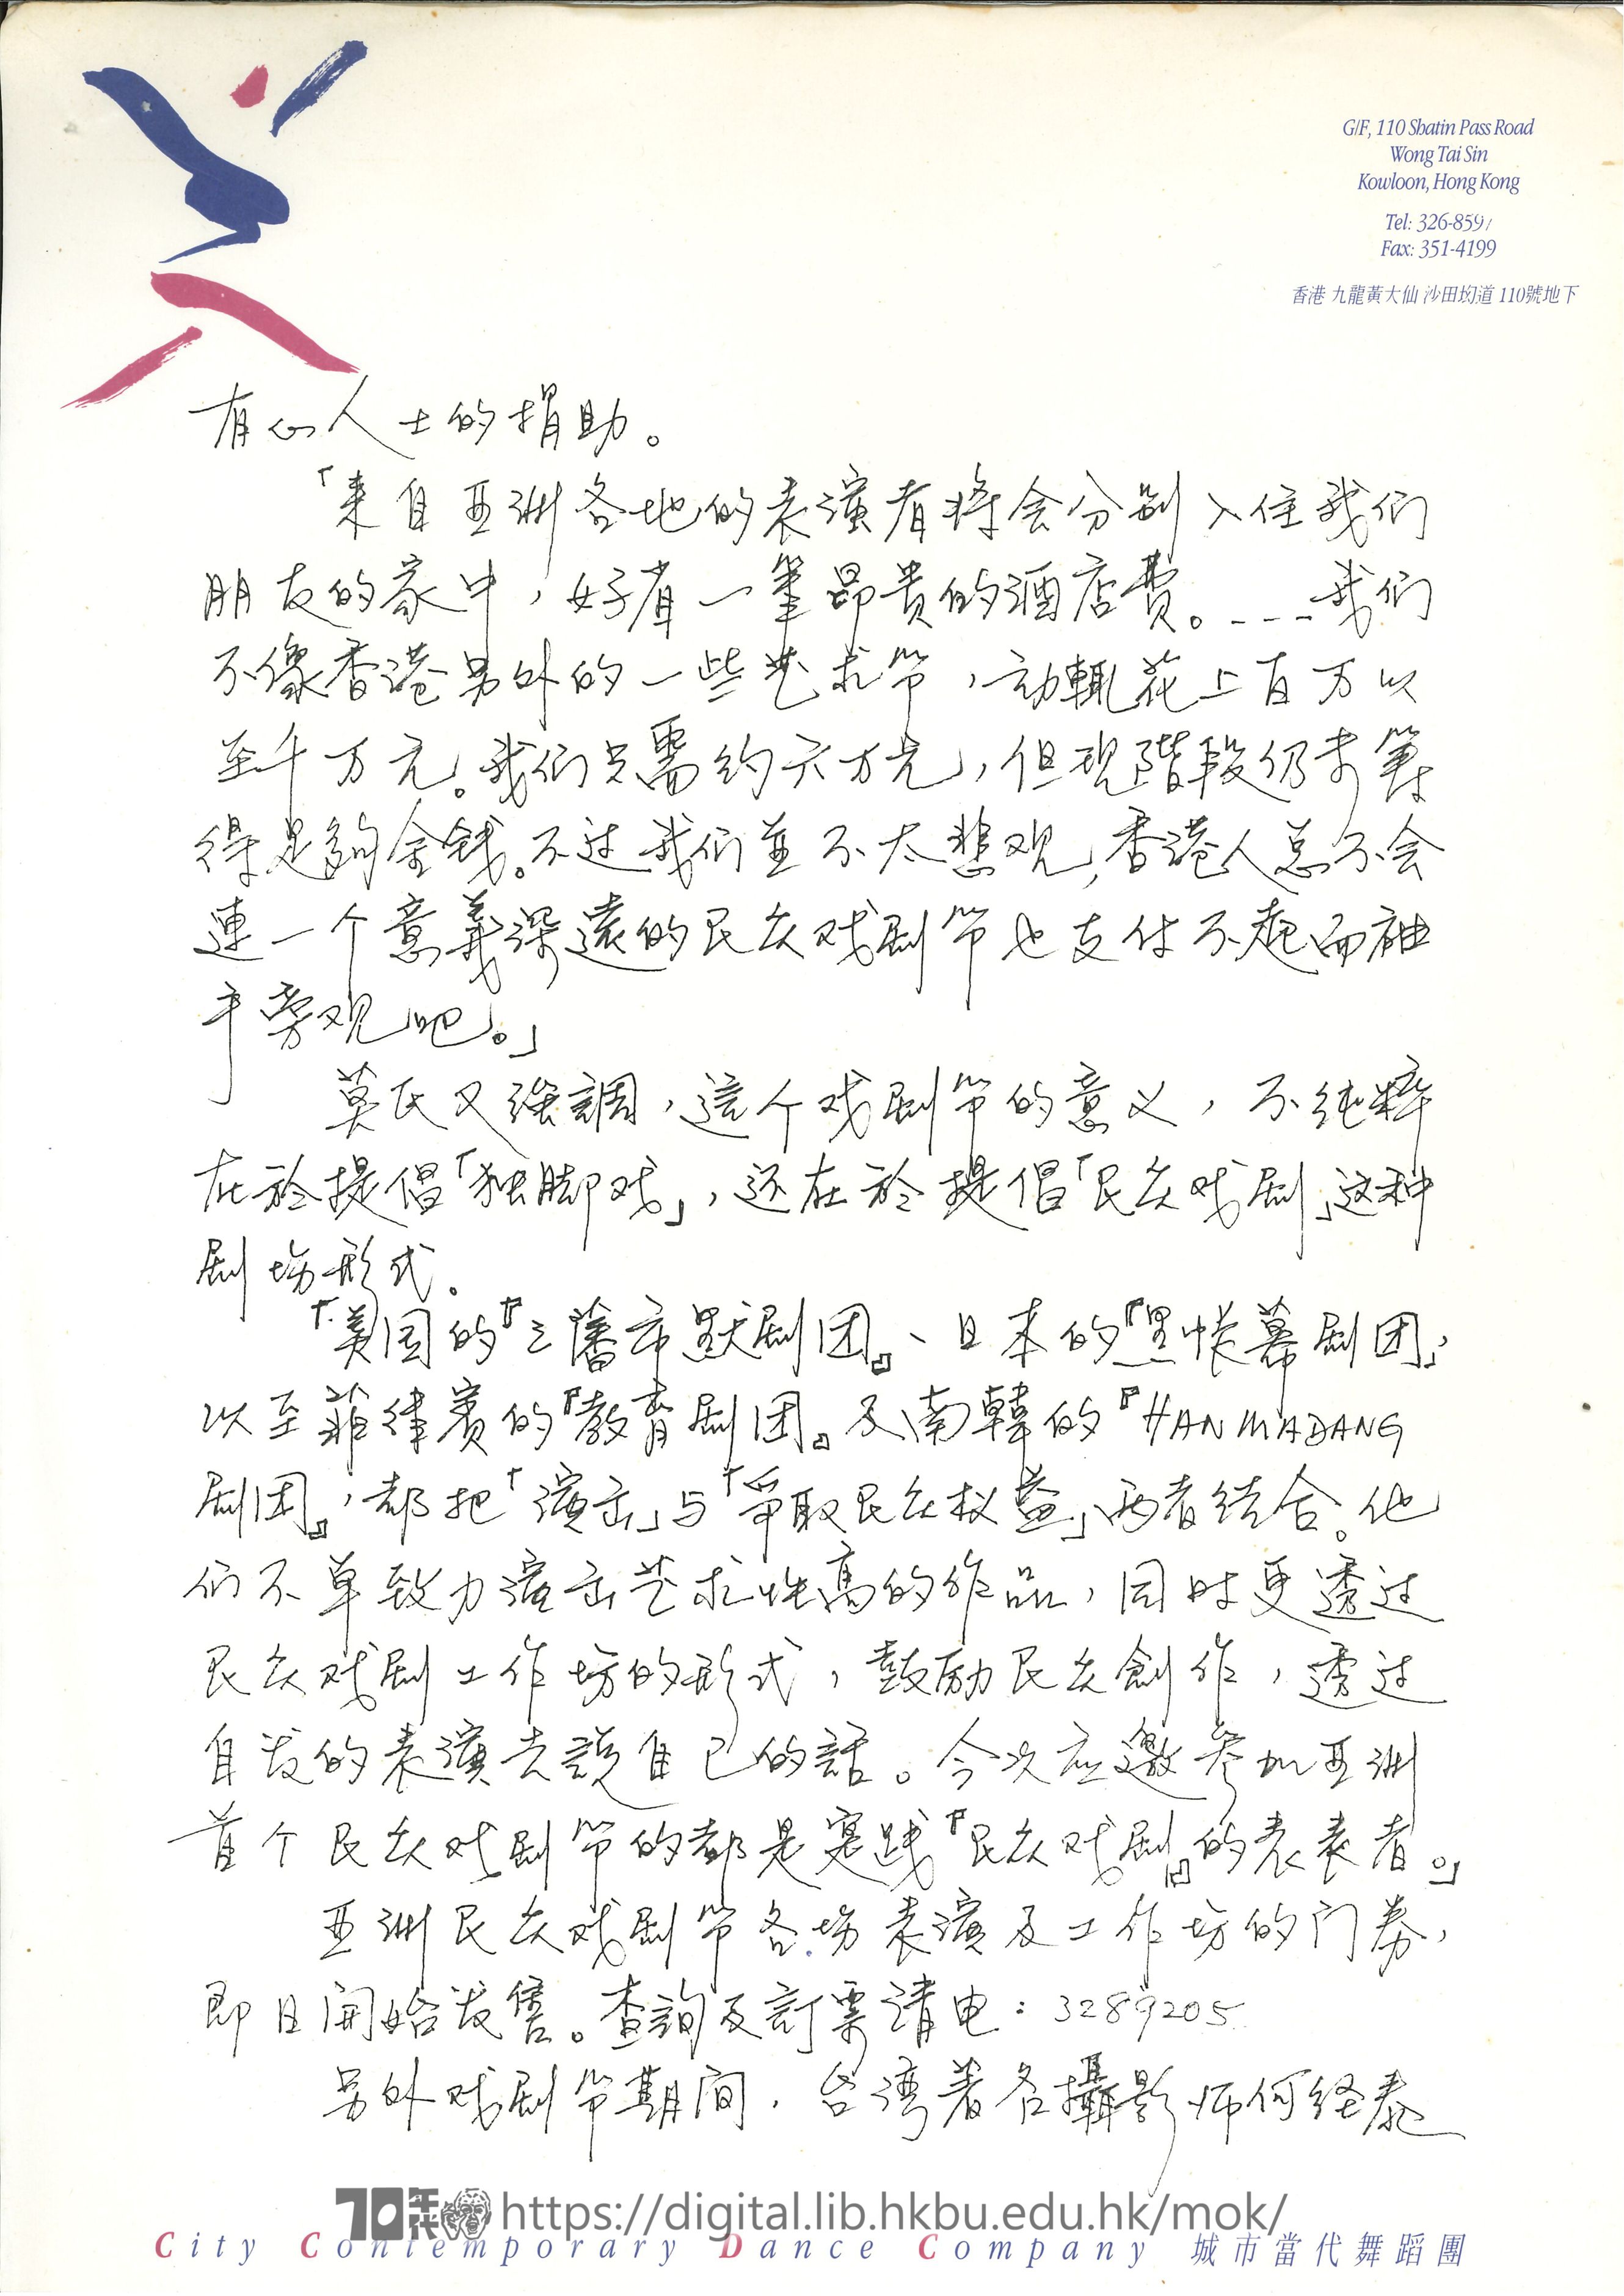 G/F, 110 Shatin Pass Road
Wong Tai Sin
Kowloon, Hong Kong
Tel: 326-8597
Fax: 351-4199
香港 九龍黃大仙 沙田坳道 110號地下
有心人士的捐助。
「来自亚洲各地的表演者将会分别入住我们
朋友的家中，好省一筆昂贵的酒店费。---我们
不像香港另外的一些艺术节，动輒花上百万以
至千万元。我们只需约六万元，但现階段仍未筹
得足夠金钱。不过我们並不太悲观，香港人总不会
連一个意義深遠的民众戏剧节也支付不起而袖
手旁观吧。」
莫氏又強調，這个戏剧节的意义，不纯粹
在於提倡「独脚戏」，还在於提倡「民众戏剧」这种
剧场形式。
「美国的『三藩市默剧团』、日本的『黑帐幕剧团』
以至菲律宾的『教育剧团』及南韓的『HANMADANG
剧团』，都把「演出」与「爭取民众权益」两者结合。他
们不单致力演出艺术性高的作品，同时更透过
民众戏剧工作坊的形式，鼓励民众創作，透过
自发的表演去說自己的話。今次应邀参加亚洲
首个民众戏剧节的都是实践『民众戏剧』的表表者。」
亚洲民众戏剧节各场表演及工作坊的门券，
即日開始发售。查詢及訂票请电：3289205
另外戏剧节期间，台湾著名攝影师何经泰
70年代 https://digital.lib.hkbu.edu.hk/mok/
City Contemporary Dance Company 城市當代舞蹈團